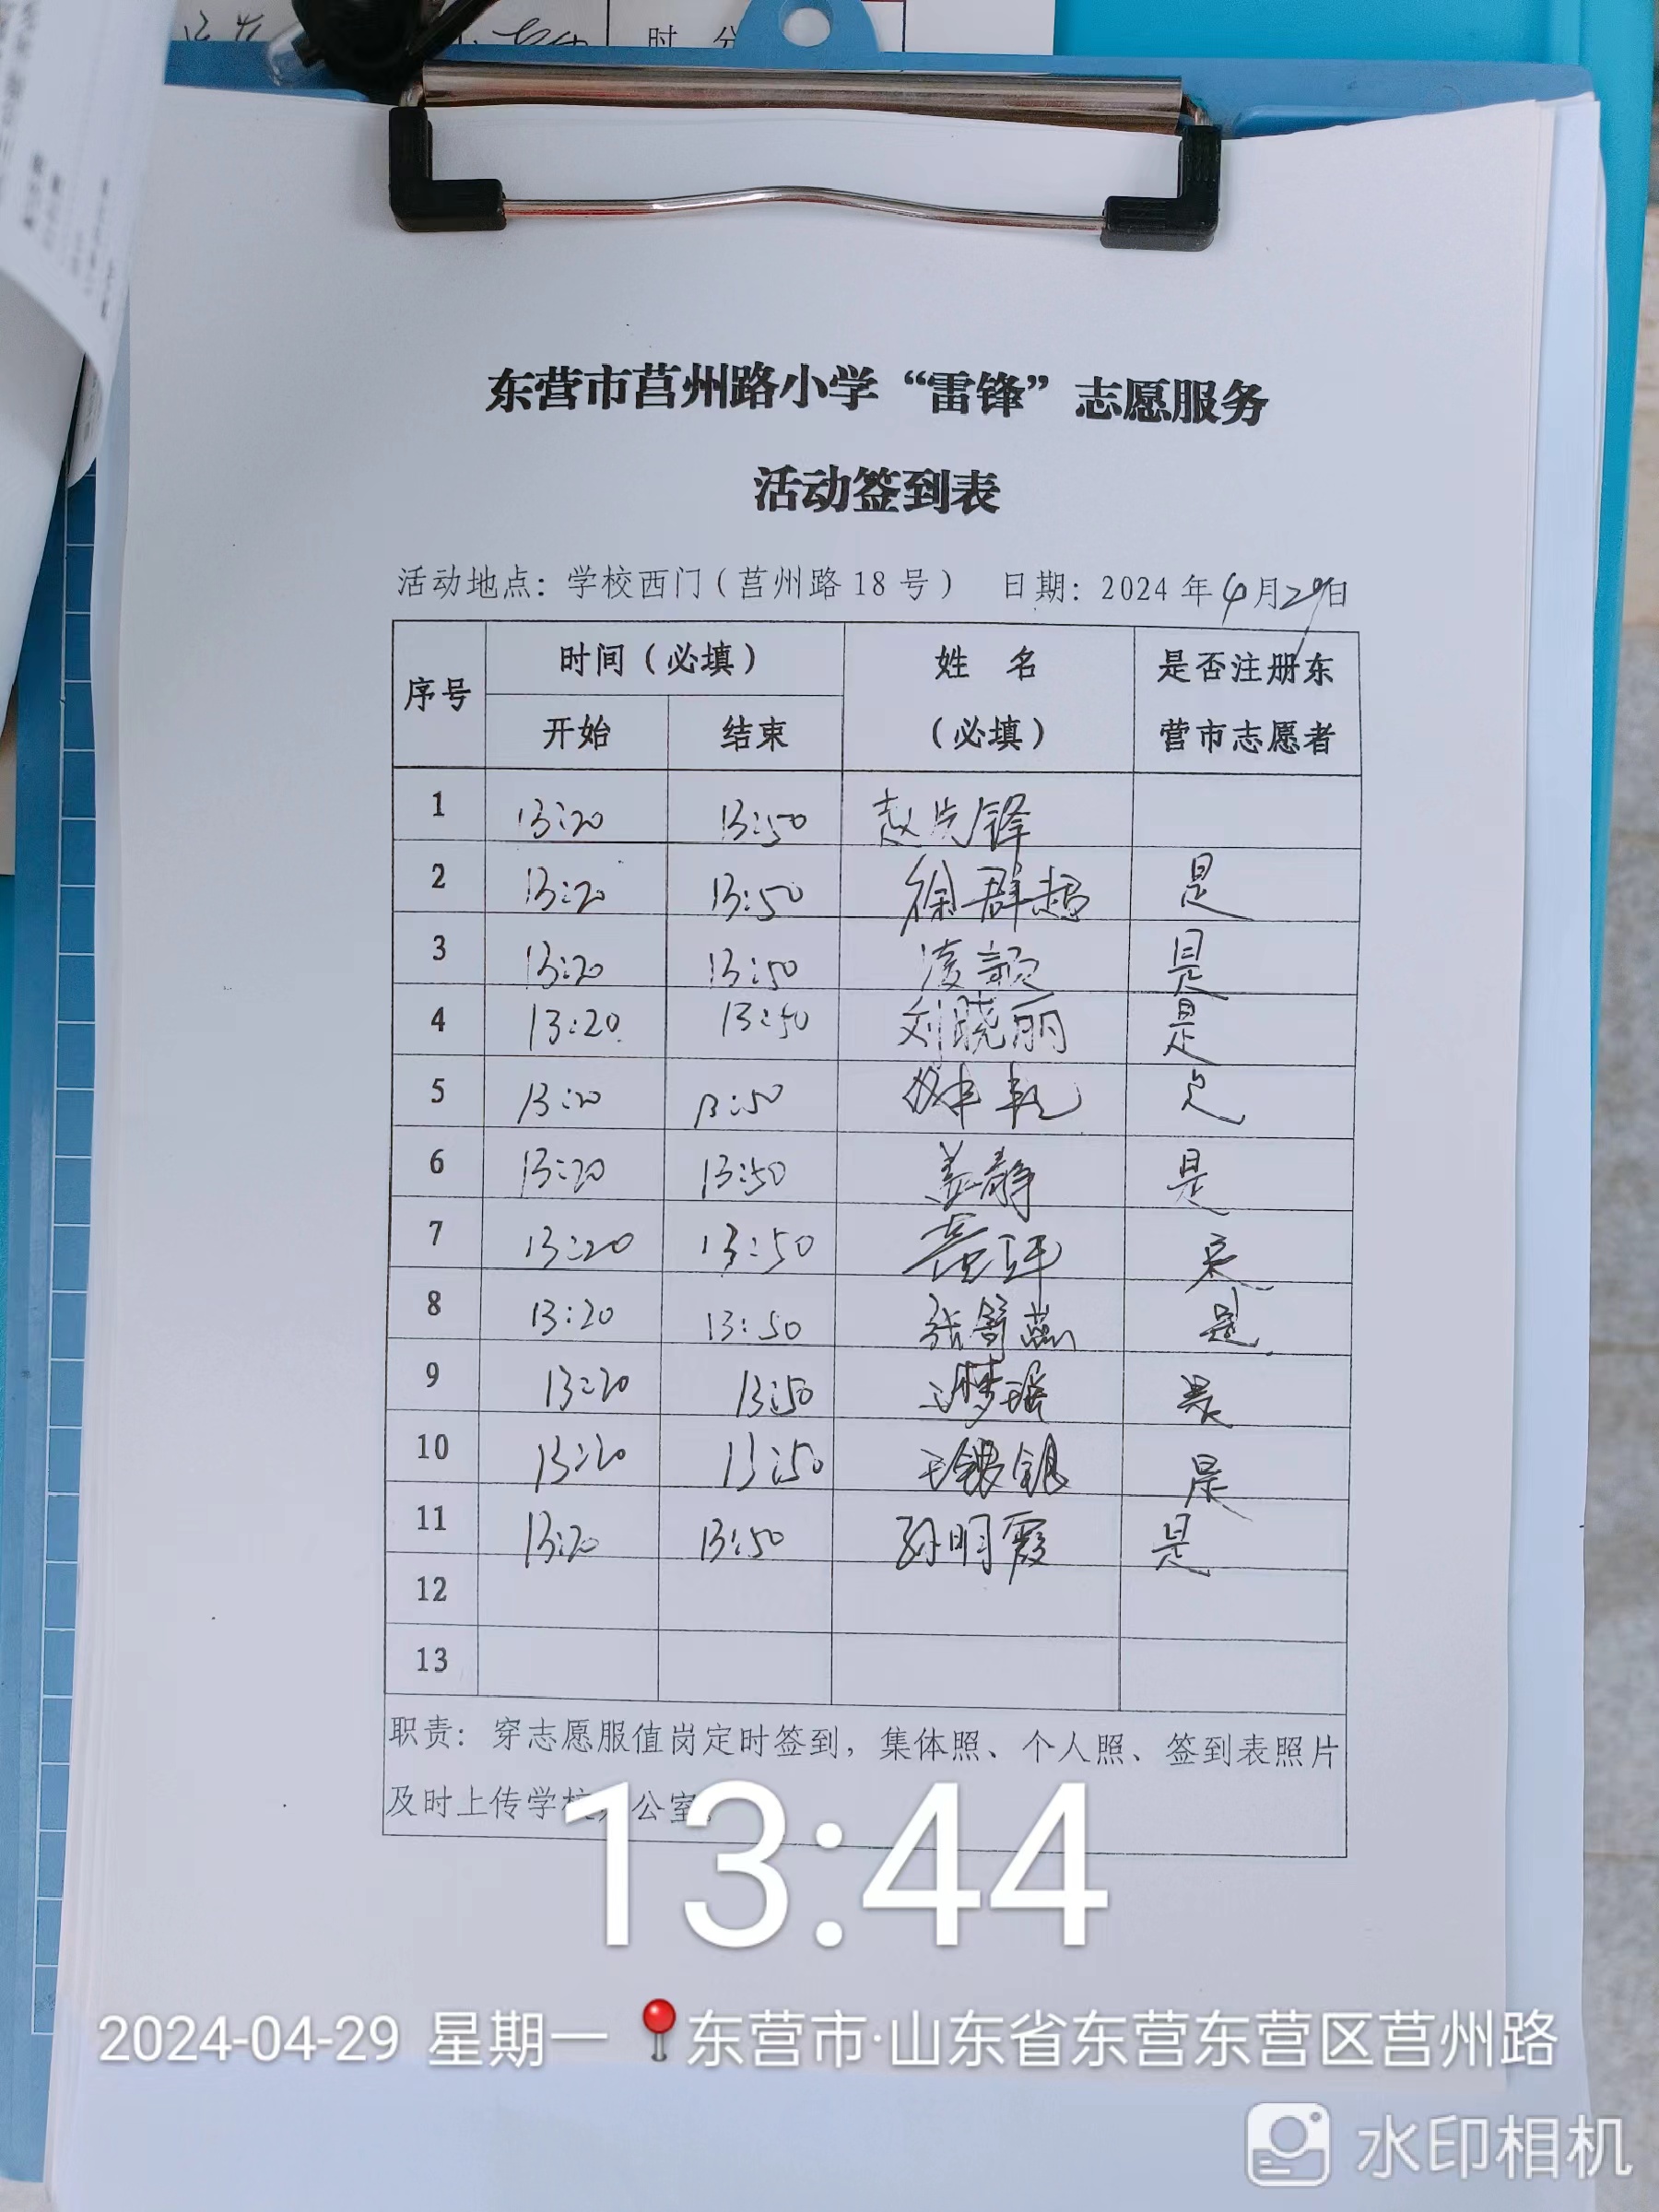 时 分
东营市莒州路小学“雷锋”志愿服务
活动签到表
活动地点：学校西门（莒州路18号） 日期：2024年4月29日
序号 时间（必填） 姓 名（必填） 是否注册东营市志愿者
开始 结束
1 13:20 13:50 赵先锋
2 13:20 13:50 徐群超 是
3 13:20 13:50 凌颖 是
4 13:20 13:50 刘晓丽 是
5 13:20 13:50 是
6 13:20 13:50 姜静 是
7 13:20 13:50 是
8 13:20 13:50 是
9 13:20 13:50 梦瑶 是
10 13:20 13:50 王银 是
11 13:20 13:50 孙明霞 是
12
13
职责：穿志愿服值岗定时签到，集体照、个人照、签到表照片
及时上传学校办公室。
13:44
2024-04-29 星期一 东营市·山东省东营东营区莒州路
水印相机